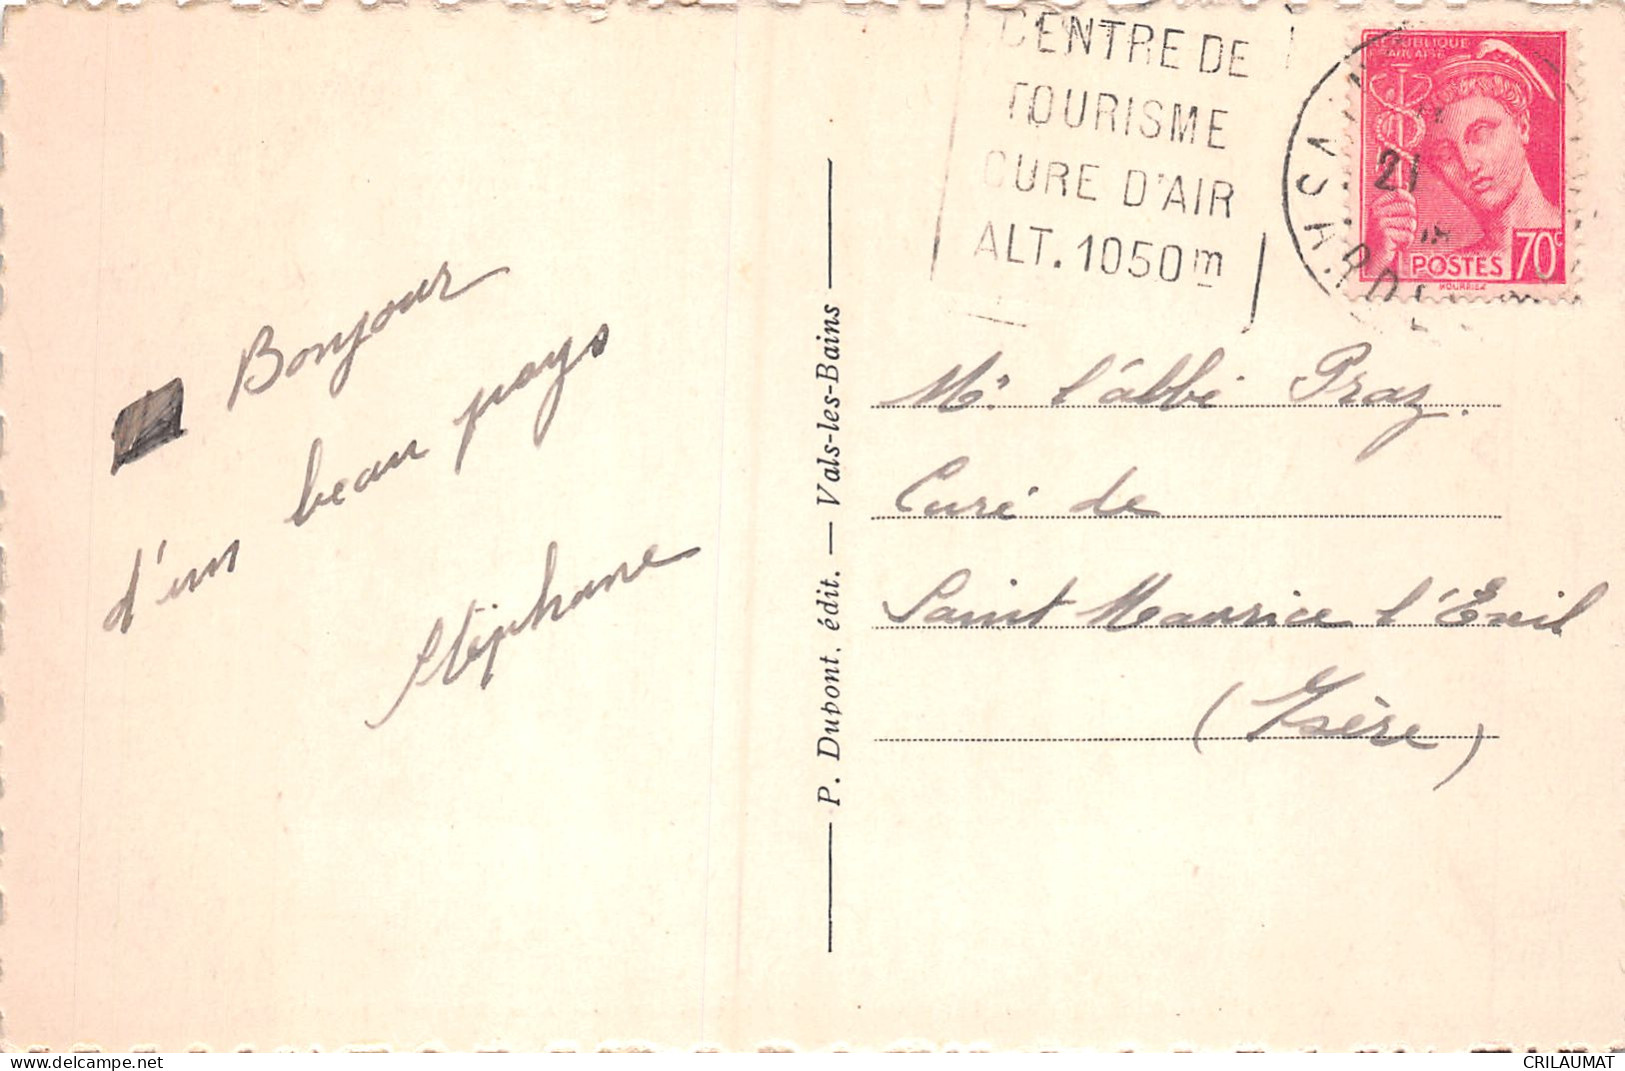 CENTRE DE
TOURISME
CURE D'AIR
ALT. 1050 m
RÉPUBLIQUE
FRANÇAISE
21
POSTES 70c
Bonjour
d'un beau pays
Stéphane
P. Dupont, édit. — Vals-les-Bains
Mr. l'abbé Praz.
Curé de
Saint Maurice l'Exil
(Isère)
CRILAUMAT